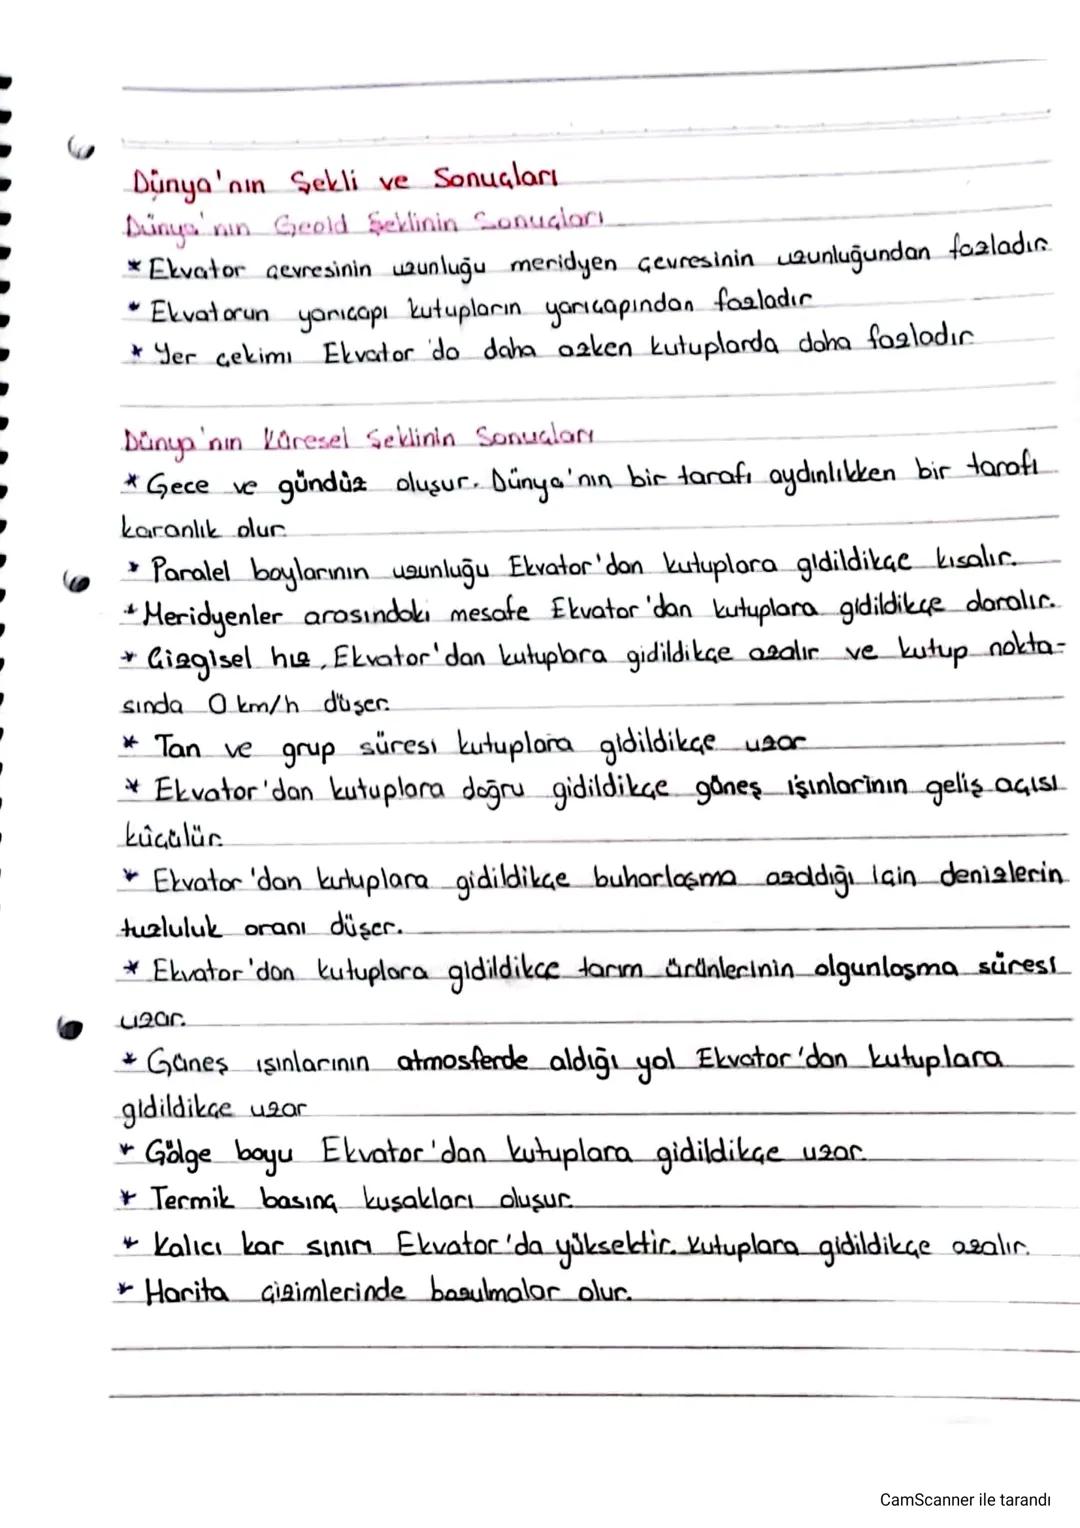 Dünya'nın Şekli ve Sonuçları
Dünya'nın Geoid Şeklinin Sonuçları
* Ekvator çevresinin uzunluğu meridyen çevresinin uzunluğundan fazladır.
* Ekvatorun yarıçapı kutupların yarıçapından fazladır
* Yer çekimi Ekvator'da daha azken kutuplarda daha fazladır
Dünya'nın Küresel Şeklinin Sonuçları
* Gece ve gündüz oluşur. Dünya'nın bir tarafı aydınlıkken bir tarafı
karanlık olur.
* Paralel boylarının uzunluğu Ekvator'dan kutuplara gidildikçe kısalır.
* Meridyenler arasındaki mesafe Ekvator'dan kutuplara gidildikçe daralır.
* Çizgisel hız, Ekvator'dan kutuplara gidildikçe azalır ve kutup nokta-
sında 0 km/h düşer.
* Tan ve grup süresi kutuplara gidildikçe uzar
* Ekvator'dan kutuplara doğru gidildikçe güneş işınlarının geliş açısı
küçülür.
* Ekvator'dan kutuplara gidildikçe buharlaşma azaldığı için denizlerin
tuzluluk oranı düşer.
* Ekvator'dan kutuplara gidildikçe tarım ürünlerinin olgunlaşma süresi
uzar.
* Güneş ışınlarının atmosferde aldığı yol Ekvator'dan kutuplara
gidildikçe uzar
* Gölge boyu Ekvator'dan kutuplara gidildikçe uzar.
* Termik basınç kuşakları oluşur.
* Kalıcı kar sınırı Ekvator'da yüksektir. Kutuplara gidildikçe azalır.
* Harita çizimlerinde bozulmalar olur.
CamScanner ile tarandı